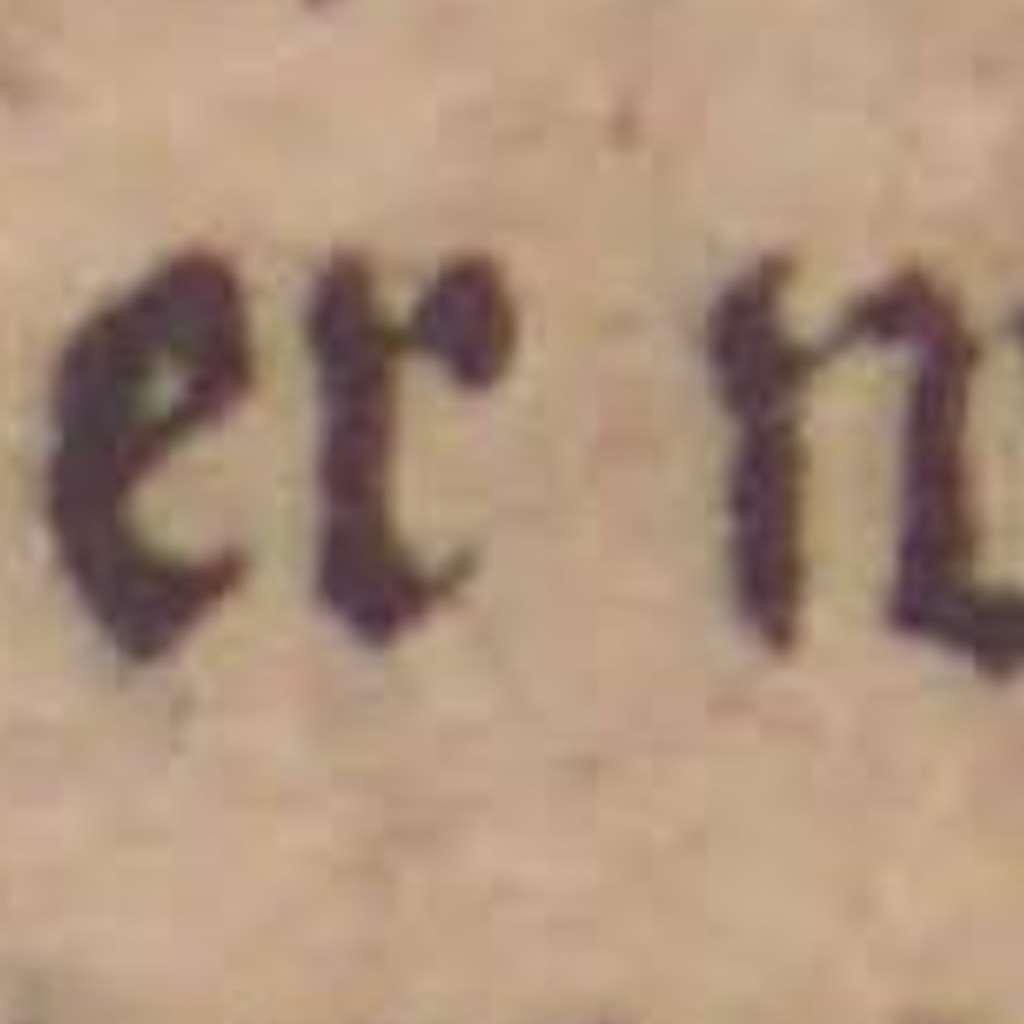 er n